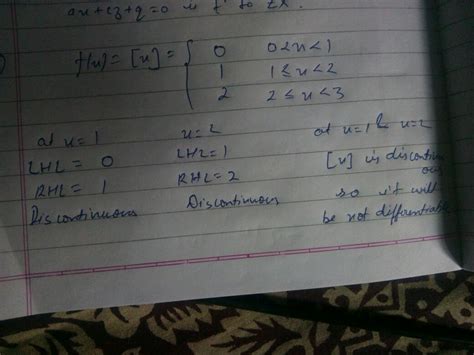 ax+cz+q=0 is
f(x) = [x] = { 0 0<x<1
1 1≤x<2
2 2≤x<3
at x=1
LHL = 0
RHL = 1
Discontinuous
x=2
LHL=1
RHL=2
Discontinuous
at x=1 & x=2
[x] is discontin
ous
so it will
be not differentiable